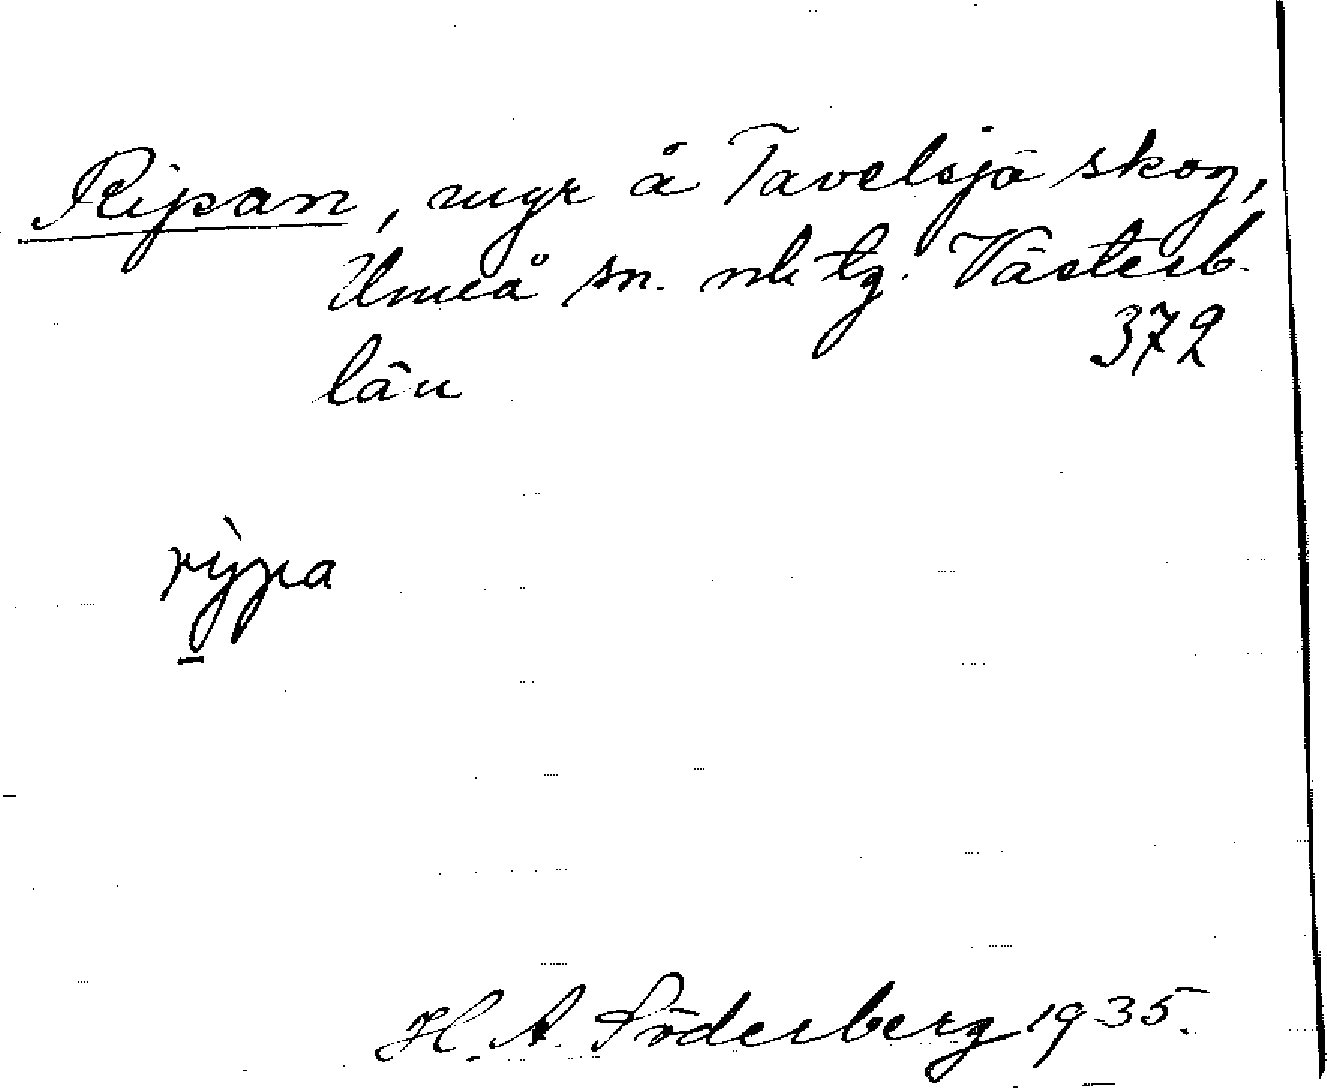 Ripan, myr å Tavelsjö skog,
Umeå sn. nk tg. Västerb.
län 372
rypa
H. A. Söderberg 1935.